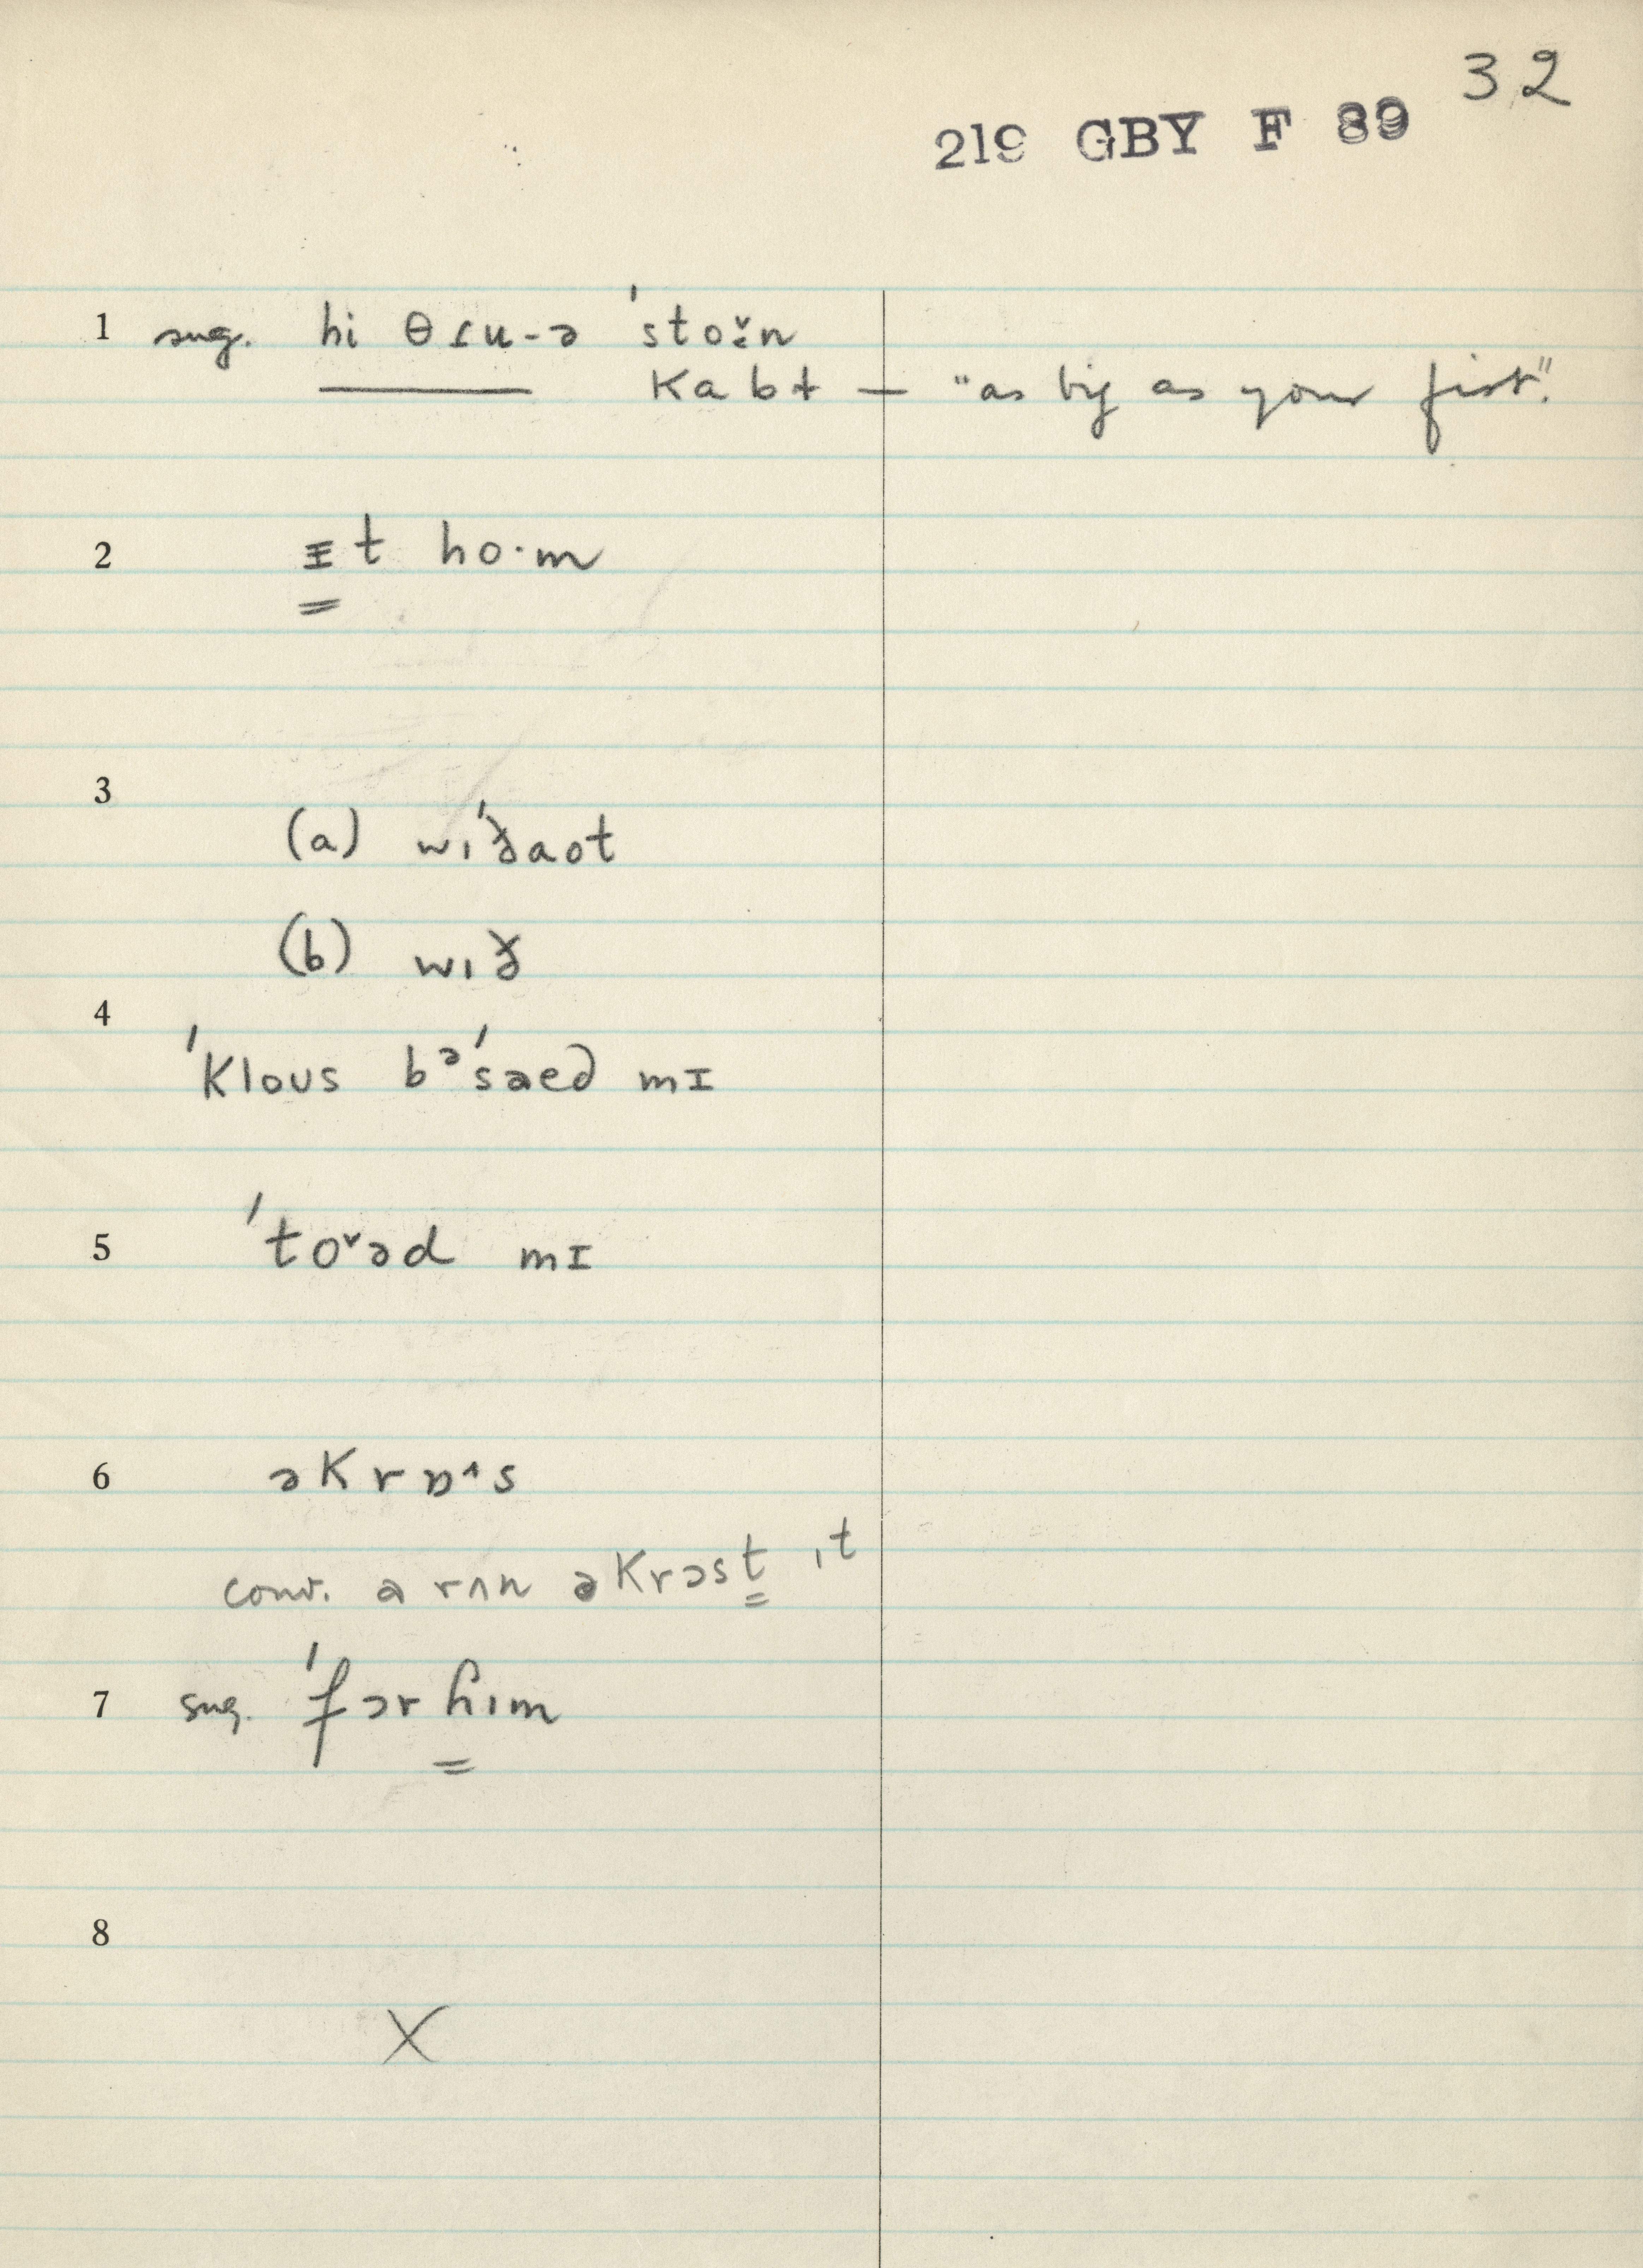 32
219 GBY F 89
1 sug. hi θɾu-ə ˈstoˇ:n
——— Kabɫ — "as big as your fist".
2 ɪt ho·m
3
(a) wɪˈðaot
(b) wɪð
4
ˈKloʊs bəˈsaed mɪ
5 ˈtoˇəd mɪ
6 əKrɒ^s
conv. a rʌn əKrɔst ɪt
7 sug. ˈfɔr ɦɪm
8
X